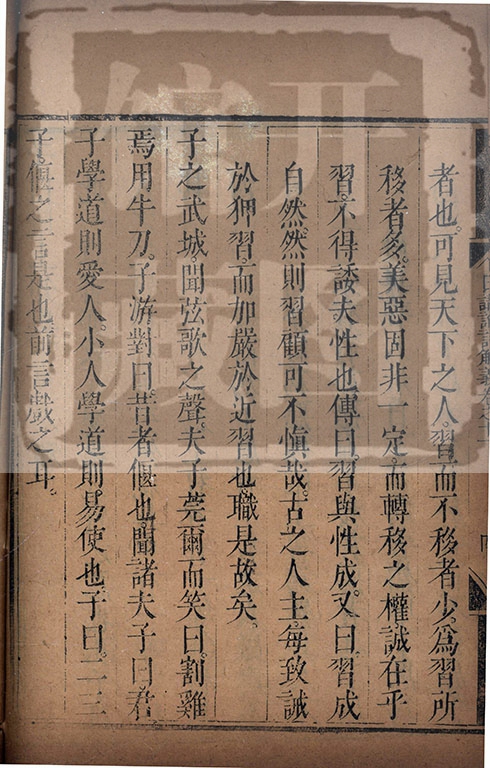 者也。可見天下之人。習而不移者少。為習所
移者多。美惡固非一定。而轉移之權。誠在乎
習。不得諉夫性也。傳曰。習與性成。又曰。習成
自然。然則習顧可不慎哉。古之人主。每致誡
於狎習。而加嚴於近習也。職是故矣。
子之武城。聞弦歌之聲。夫子莞爾而笑曰。割雞
焉用牛刀。子游對曰。昔者偃也。聞諸夫子曰。君
子學道則愛人。小人學道則易使也。子曰。二三
子。偃之言是也。前言戲之耳。